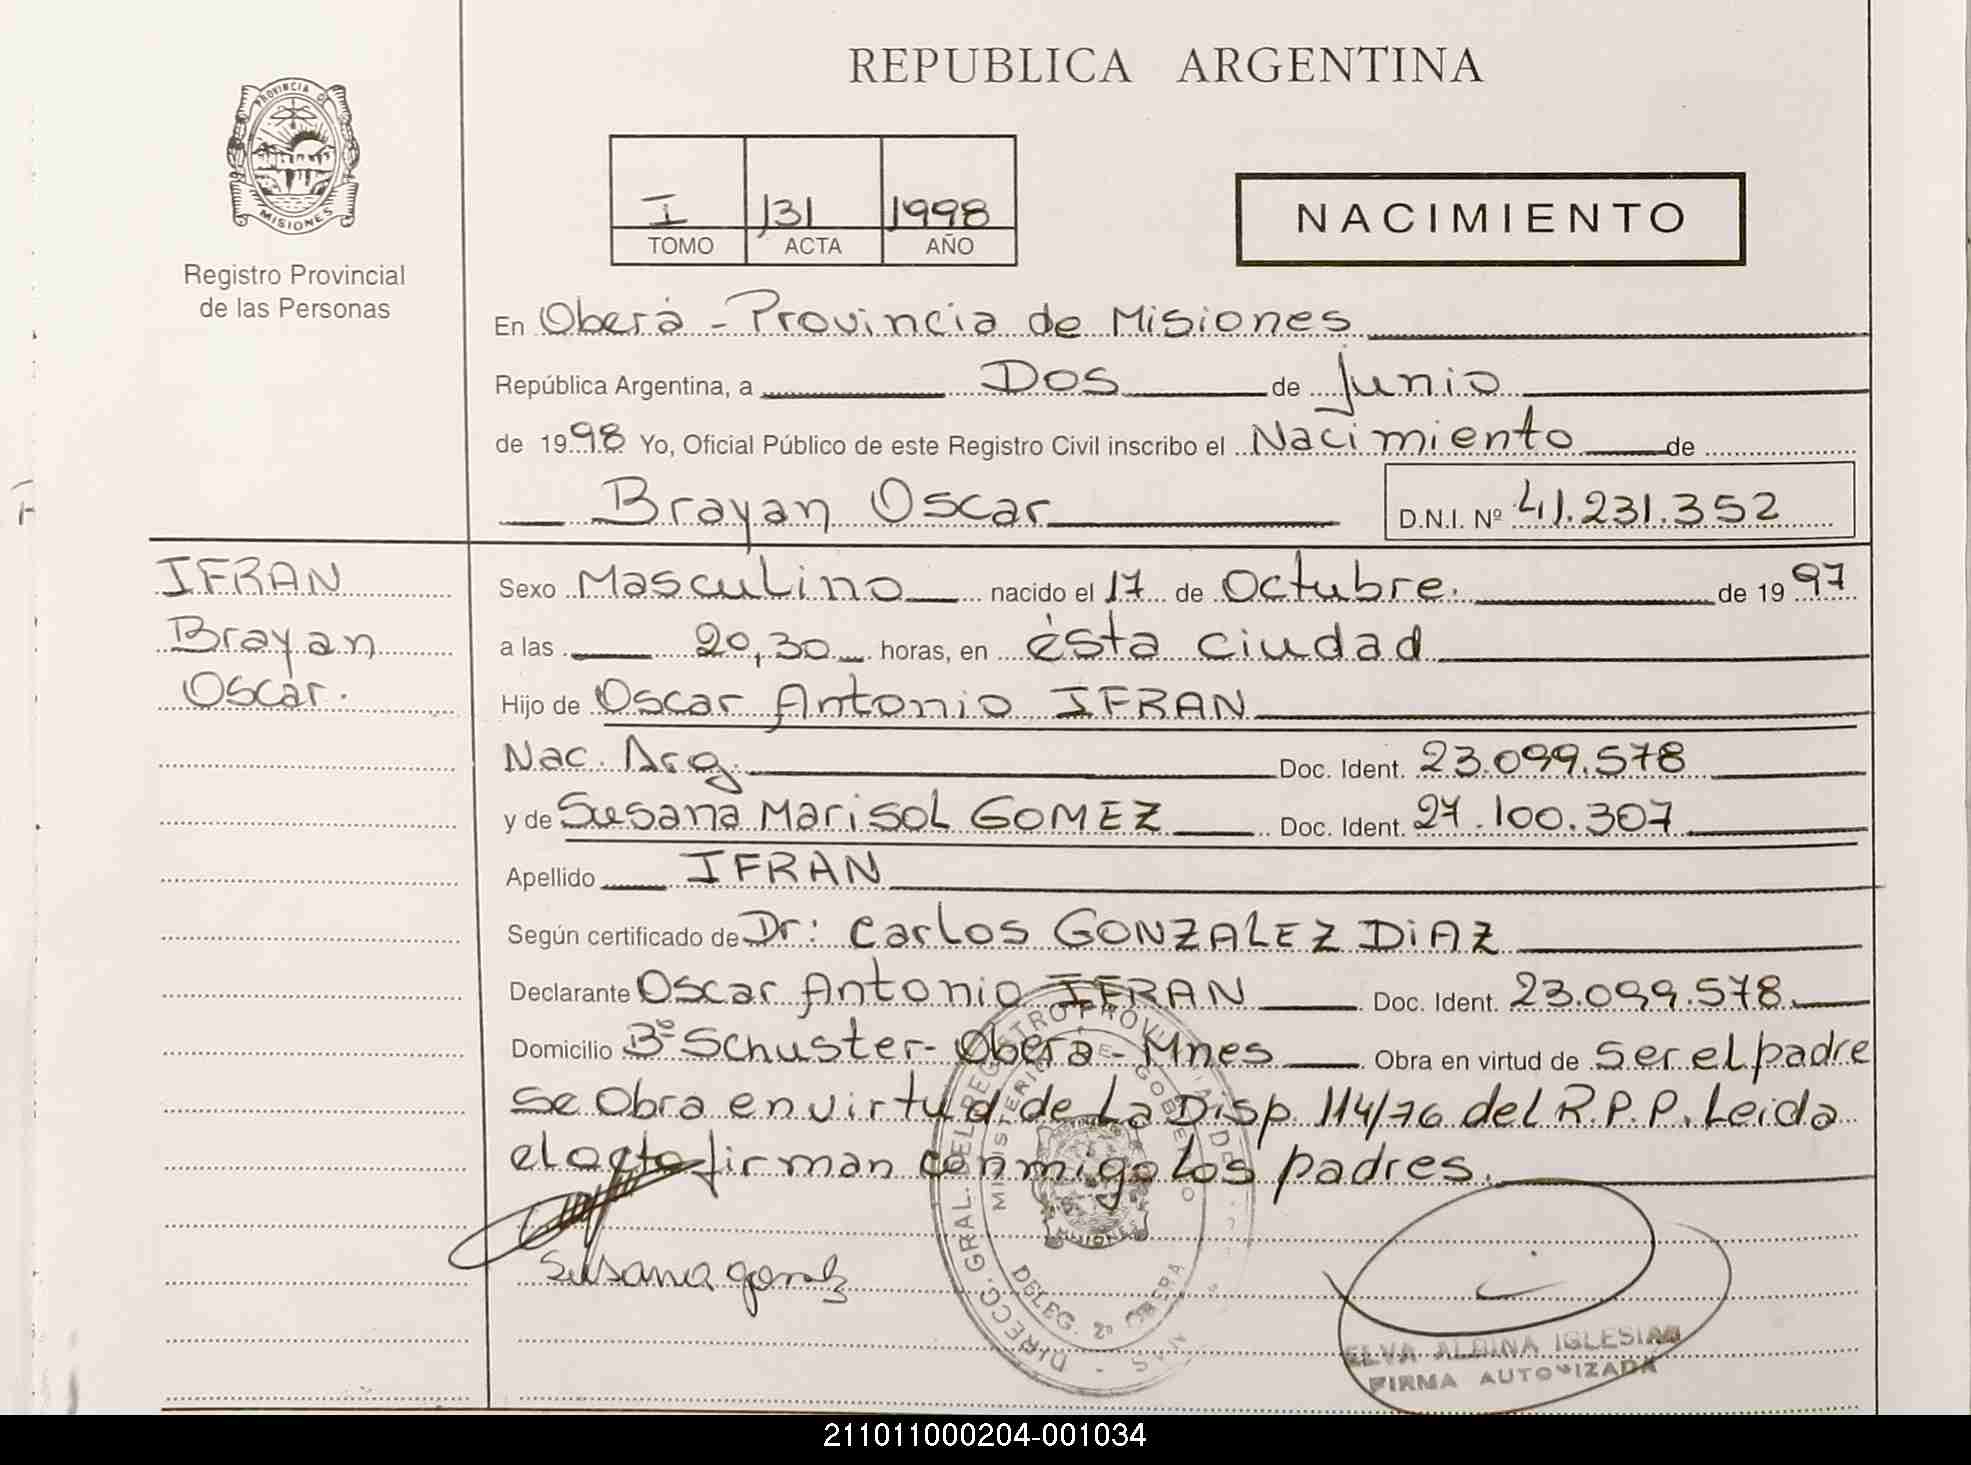 REPUBLICA ARGENTINA
PROVINCIA DE
MISIONES
Registro Provincial
de las Personas
I 131 1998
TOMO ACTA AÑO
NACIMIENTO
En Oberá - Provincia de Misiones
República Argentina, a Dos de junio
de 1998 Yo, Oficial Público de este Registro Civil inscribo el Nacimiento de
Brayan Oscar D.N.I. Nº 41.231.352
IFRAN
Brayan
Oscar.
Sexo Masculino nacido el 17 de Octubre. de 1997
a las 20,30 horas, en ésta ciudad
Hijo de Oscar Antonio IFRAN
Nac. Arg. Doc. Ident. 23.099.578
y de Susana Marisol GOMEZ Doc. Ident. 27.100.307
Apellido IFRAN
Según certificado de Dr: Carlos GONZALEZ DiAZ
Declarante Oscar Antonio IFRAN Doc. Ident. 23.099.578
Domicilio Bº Schuster - Oberá - Mnes Obra en virtud de ser el padre
Se Obra en virtud de La Disp. 114/76 del R.P.P. Leida
el acta firman conmigo los padres.
Susana gomez
DIRECC. GRAL. DEL REGISTRO PROVINCIAL DE
MINISTERIO DE GOBIERNO
MISIONES
DELEG. 2ª OBERA
ELVA ALBINA IGLESIAS
FIRMA AUTORIZADA
211011000204-001034